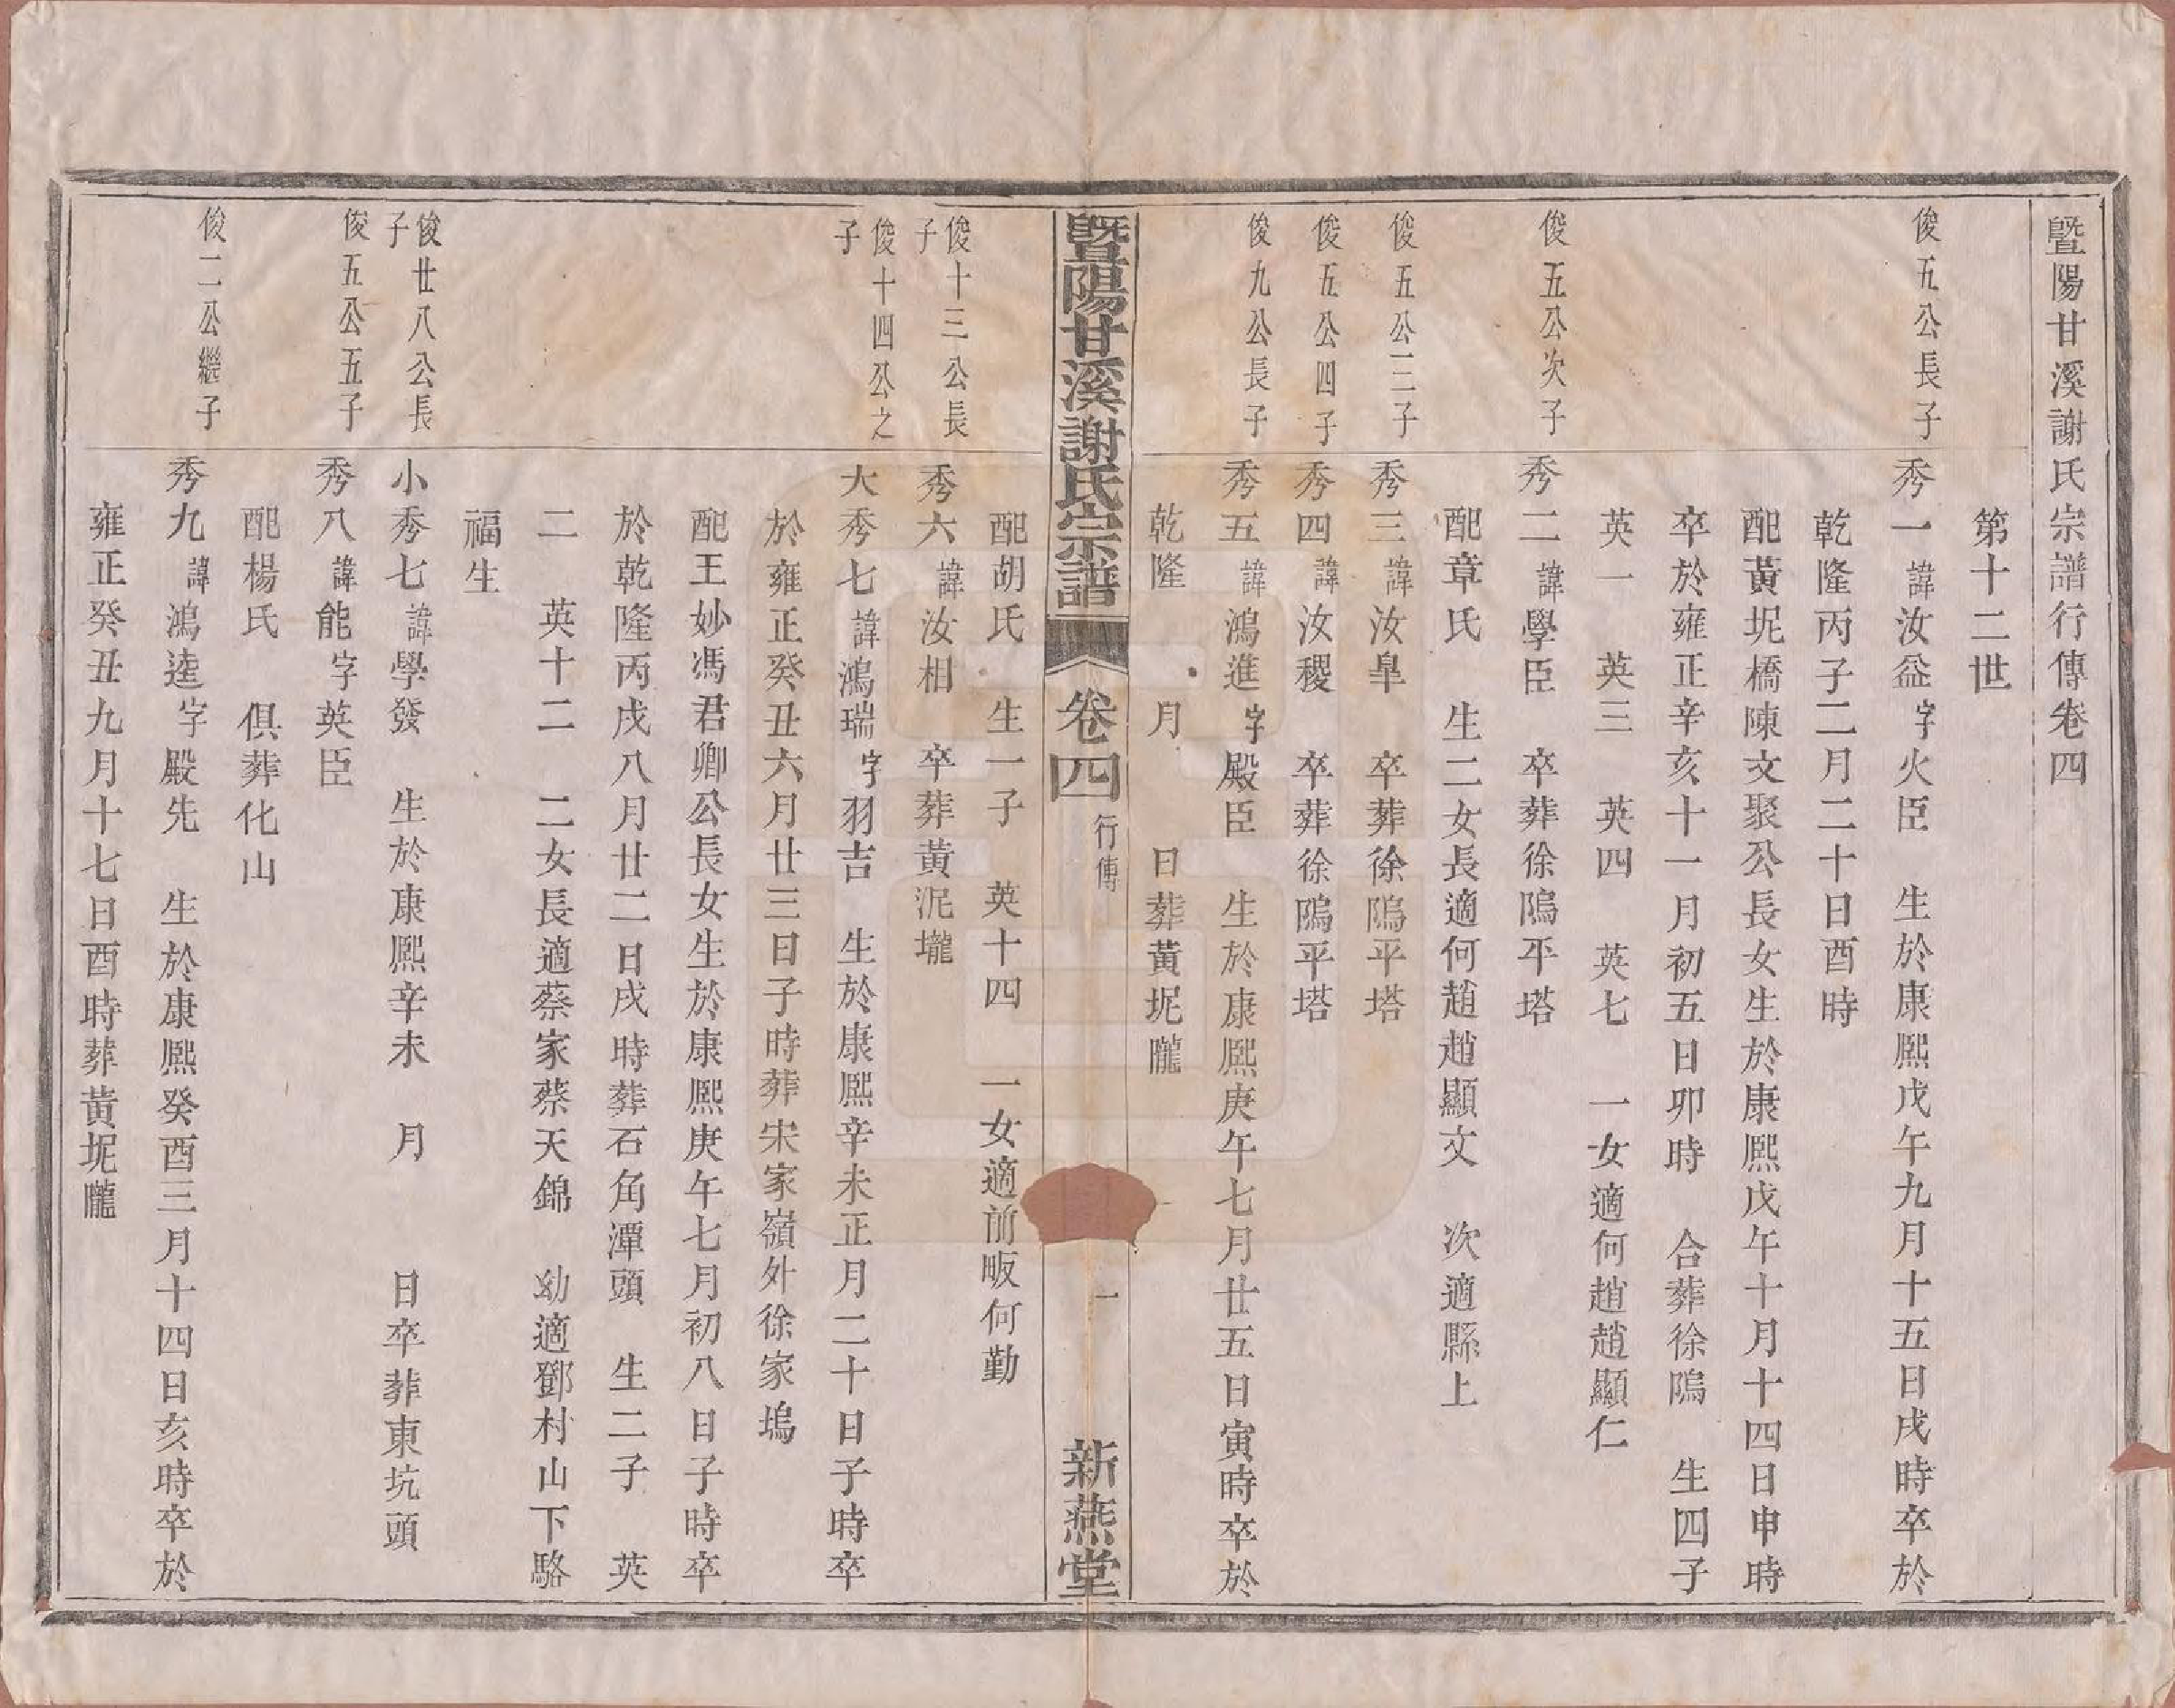 暨陽甘溪謝氏宗譜行傳卷四
第十二世
俊五公長子
秀一諱汝益字火臣　生於康熙戊午九月十五日戌時卒於
乾隆丙子二月二十日酉時
配黃坭橋陳文聚公長女生於康熙戊午十月十四日申時
卒於雍正辛亥十一月初五日卯時　合葬徐隖　生四子
英一　英三　英四　英七　一女適何趙趙顯仁
俊五公次子
秀二諱學臣　卒葬徐隖平塔
配章氏　生二女長適何趙趙顯文　次適縣上
俊五公三子
秀三諱汝皐　卒葬徐隖平塔
俊五公四子
秀四諱汝稷　卒葬徐隖平塔
俊九公長子
秀五諱鴻進字殿臣　生於康熙庚午七月廿五日寅時卒於
乾隆　月　日葬黃坭隴
暨陽甘溪謝氏宗譜　卷四　行傳　一　新燕堂
配胡氏　生一子　英十四　一女適前畈何勤
俊十三公長子
秀六諱汝相　卒葬黃泥壠
俊十四公之子
大秀七諱鴻瑞字羽吉　生於康熙辛未正月二十日子時卒
於雍正癸丑六月廿三日子時葬宋家嶺外徐家塢
配王妙馮君卿公長女生於康熙庚午七月初八日子時卒
於乾隆丙戌八月廿二日戌時葬石角潭頭　生二子　英
二　英十二　二女長適蔡家蔡天錦　幼適鄧村山下駱
福生
俊廿八公長子
小秀七諱學發　生於康熙辛未　月　日卒葬東坑頭
俊五公五子
秀八諱能字英臣
配楊氏　俱葬化山
俊二公繼子
秀九諱鴻逵字殿先　生於康熙癸酉三月十四日亥時卒於
雍正癸丑九月十七日酉時葬黃坭隴